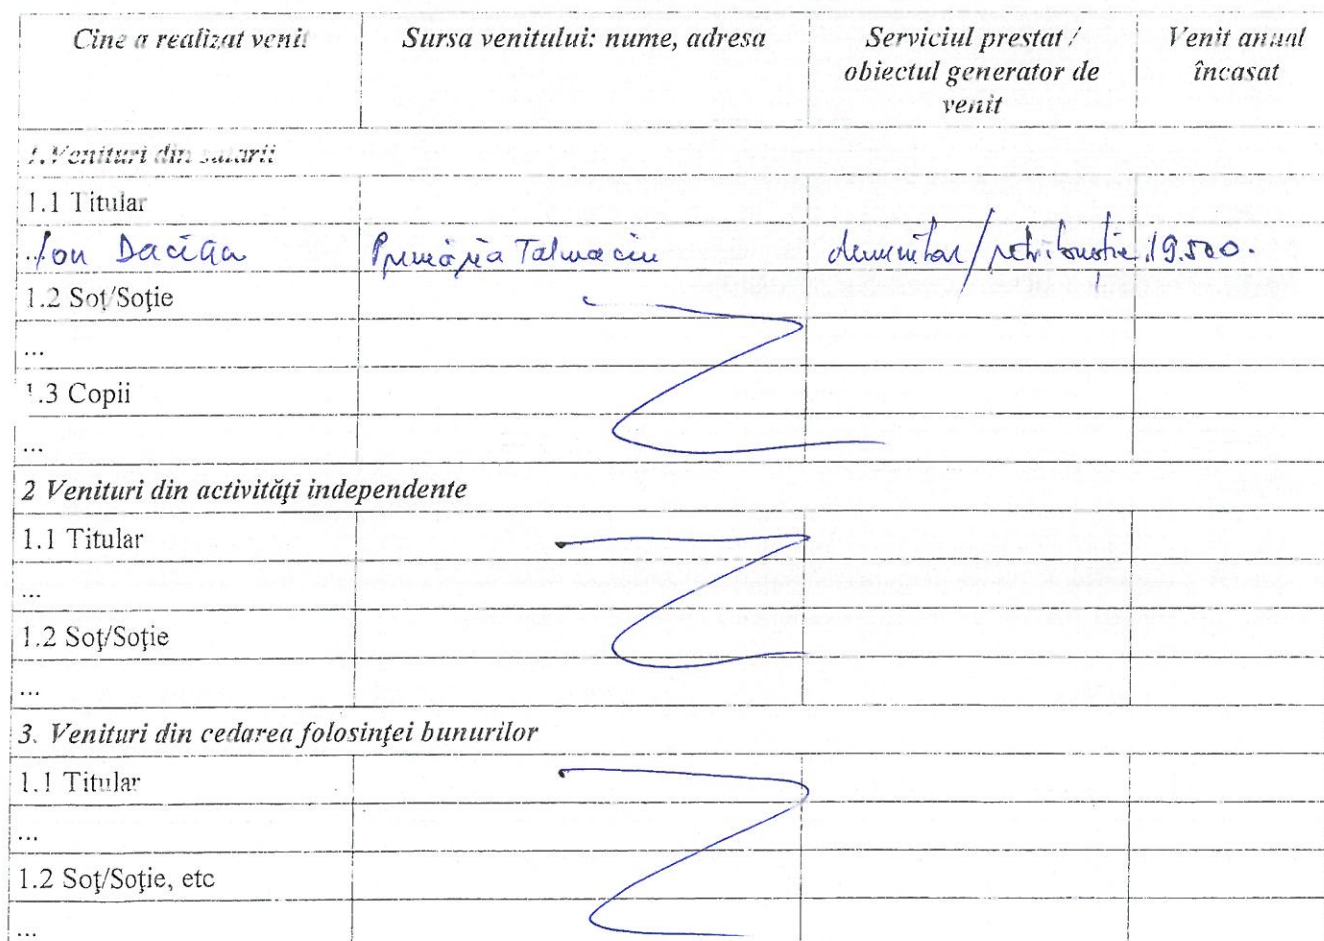 Cine a realizat venit Sursa venitului: nume, adresa Serviciul prestat / Venit anual
obiectul generator de încasat
venit
1.Venituri din salarii
1.1 Titular
Ion Dacian Primăria Talmaciu demnitar/retribuție 19.500.
1.2 Soţ/Soţie
...
1.3 Copii
...
2 Venituri din activităţi independente
1.1 Titular
...
1.2 Soţ/Soţie
...
3. Venituri din cedarea folosinţei bunurilor
1.1 Titular
...
1.2 Soţ/Soţie, etc
...